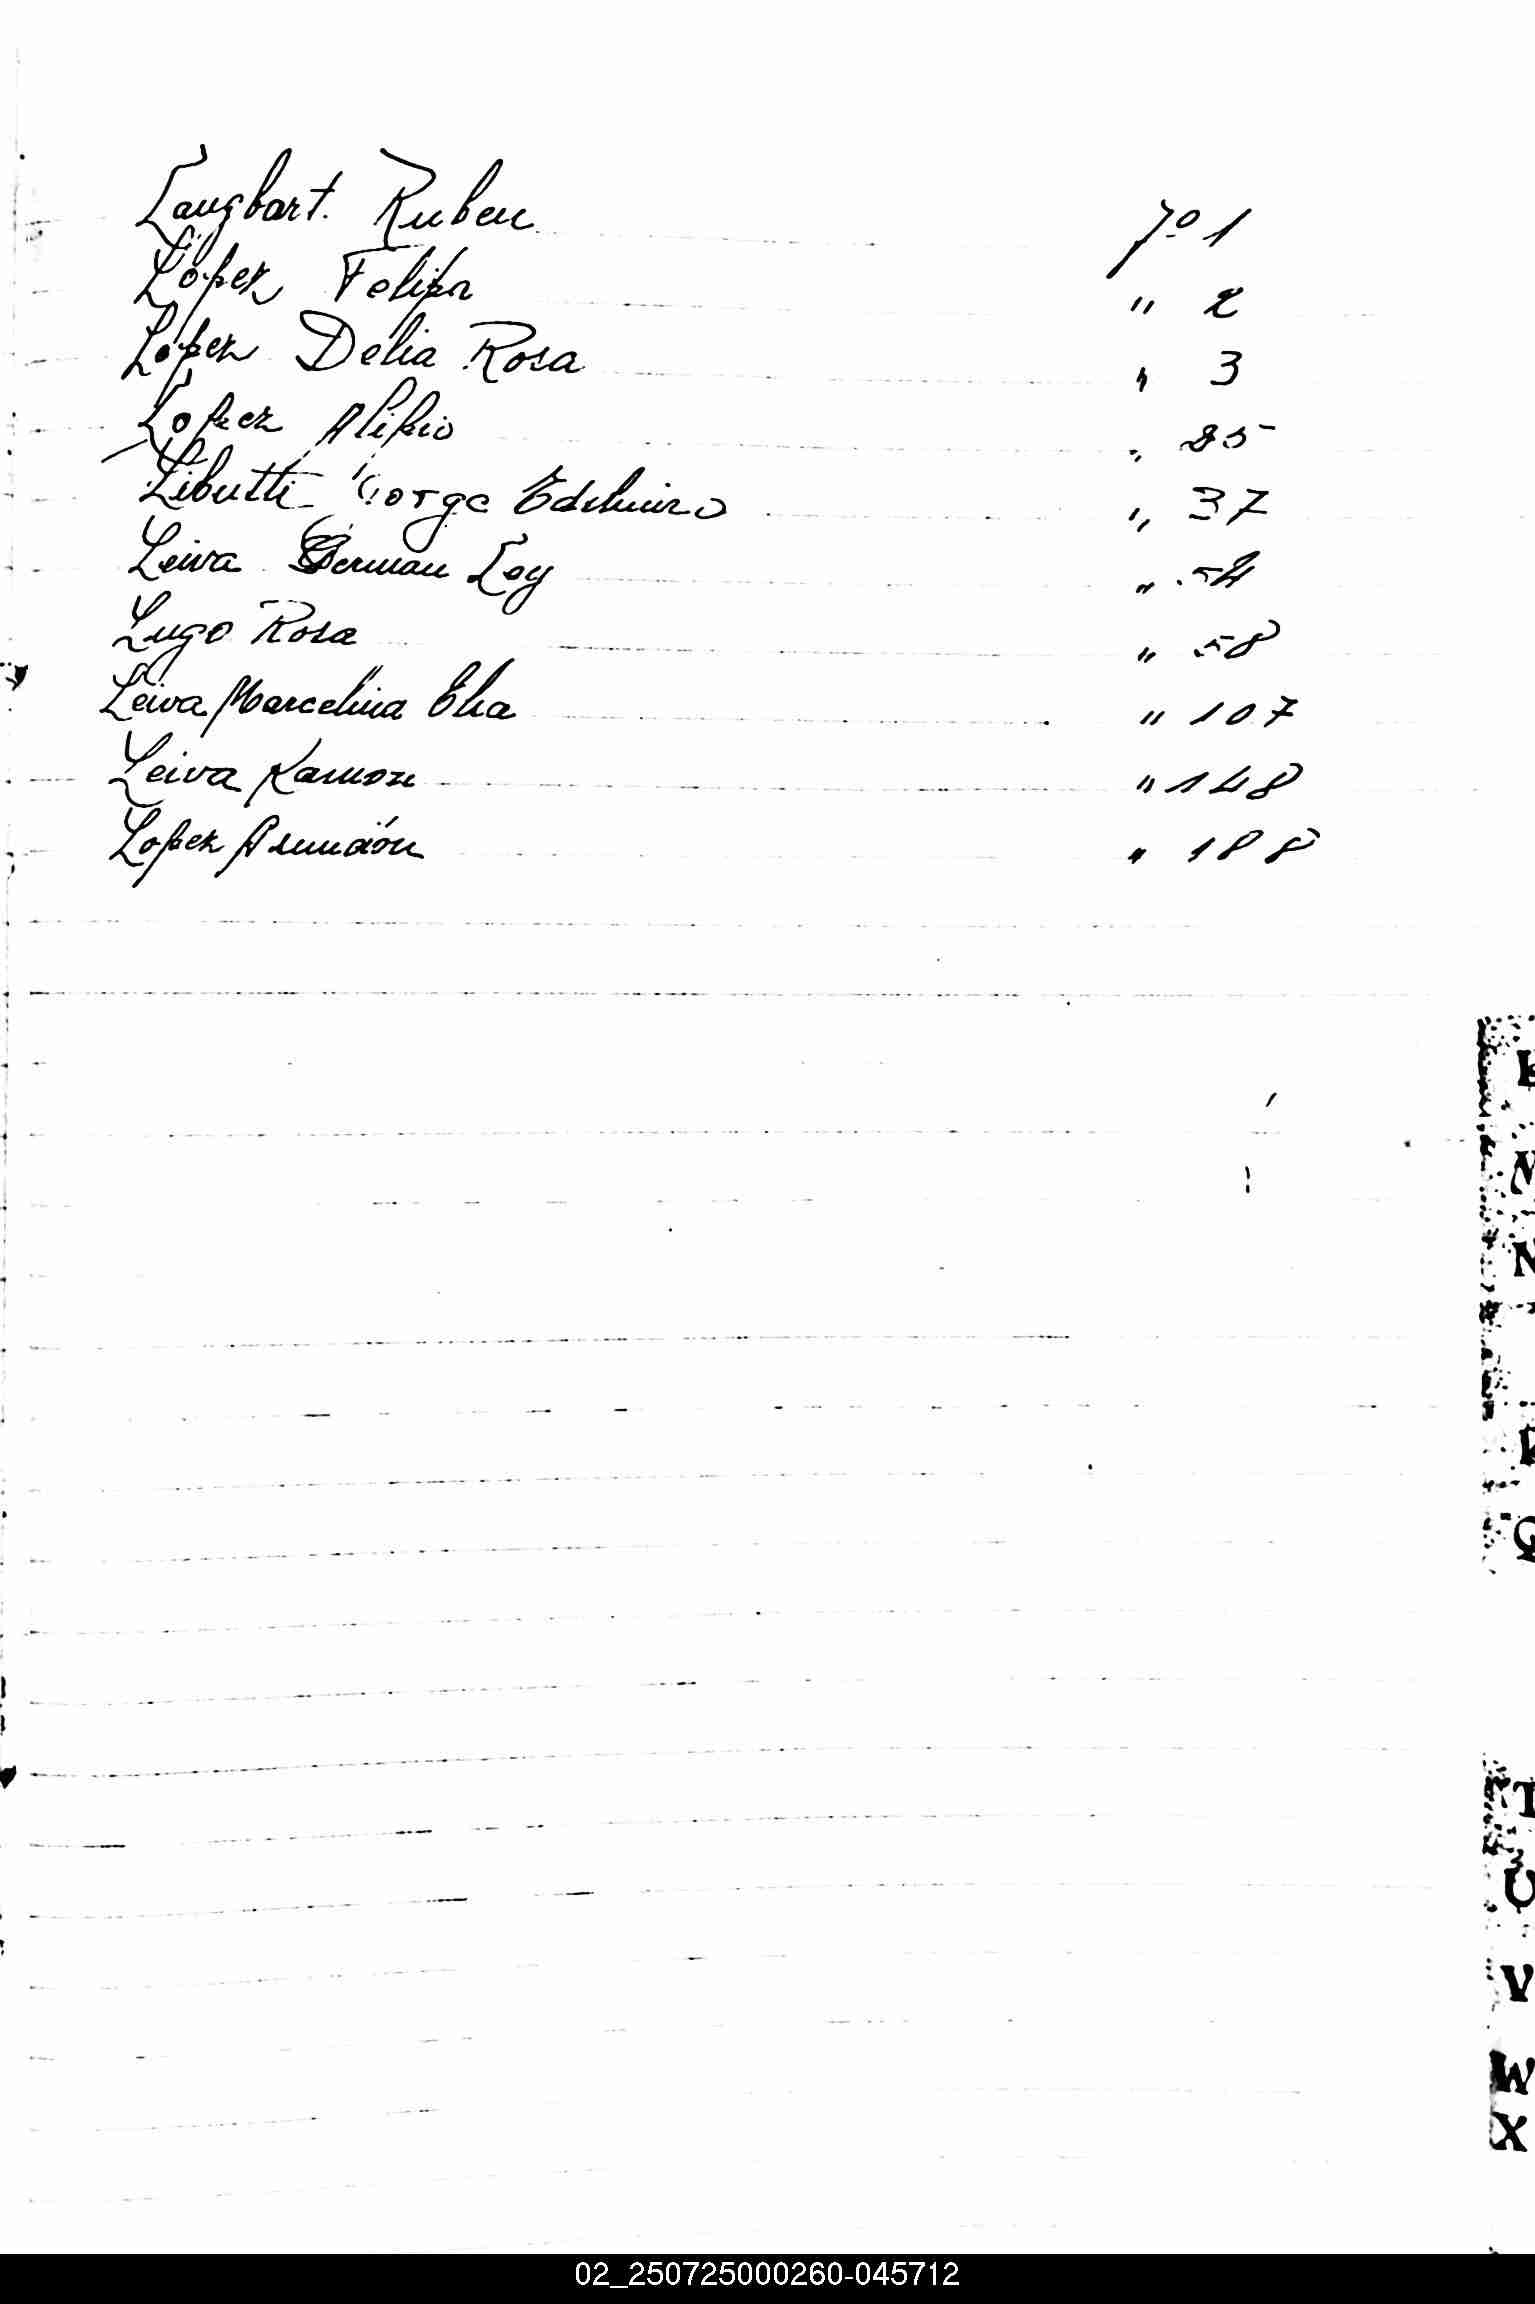 Langbart. Ruben fo 1
Lopez Felipa " 2
Lopez Delia Rosa " 3
Lopez Alipio " 25
Libutti Jorge Edelmiro " 37
Leiva German Loy " 54
Lugo Rosa " 58
Leiva Marcelina Elsa " 107
Leiva Ramon " 148
Lopez Asunción " 188
N
Q
T
U
V
W
X
02_250725000260-045712